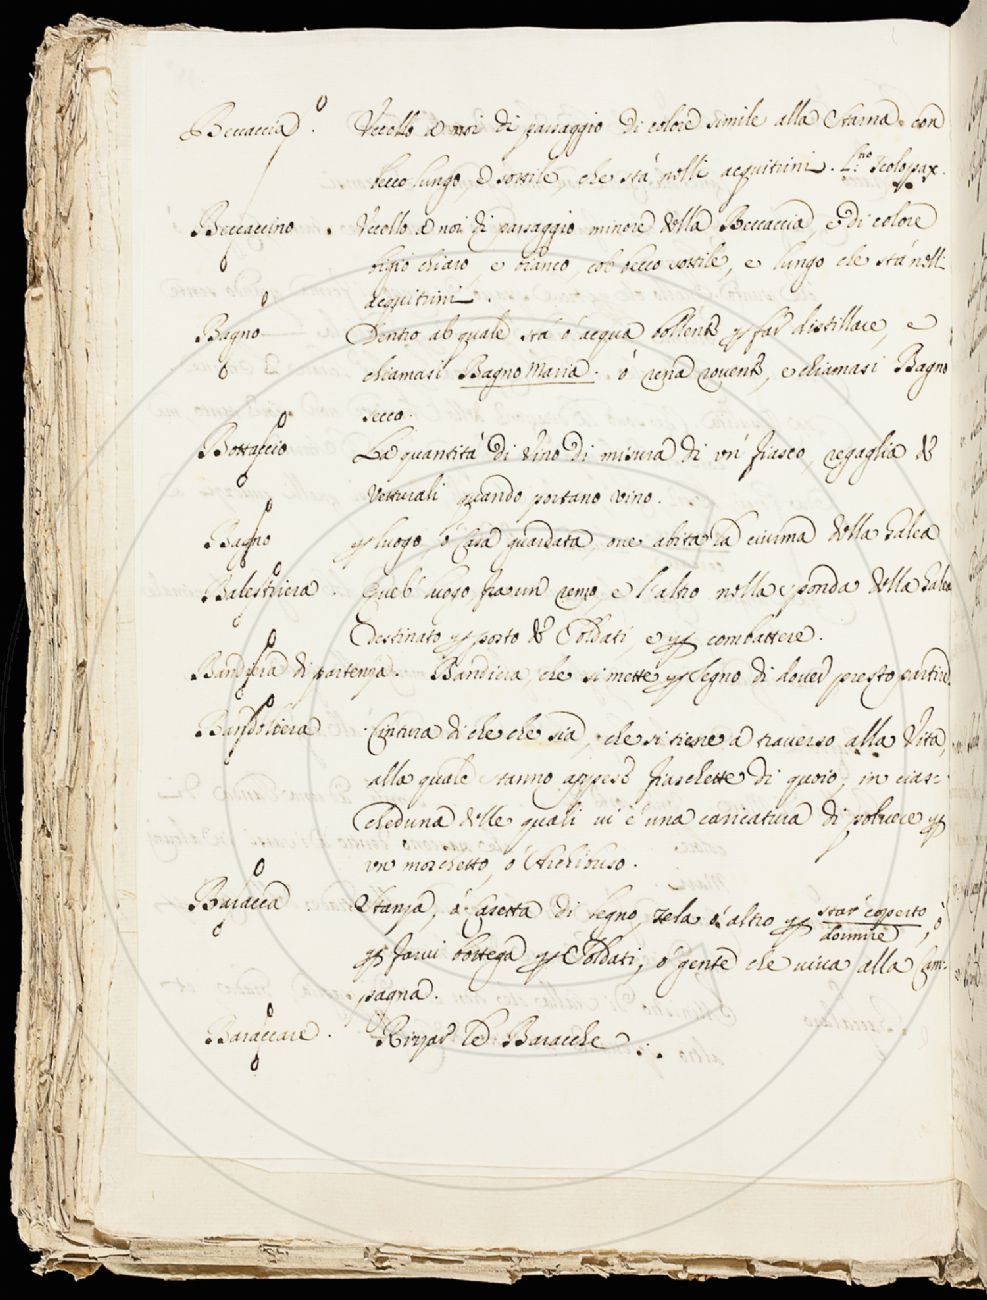 Beccaccia. Vccello a noi di passaggio di colore simile alla starna con
becco lungo, e sottile, che stà nelli acquitrini. L.no Scolopax.
Beccaccino. Vccello a noi di passaggio minore della Beccaccia, e di colore
bigio chiaro, e bianco, col becco sottile, e lungo che stà nelli
acquitrini
Bagno Dentro al quale stà ò acqua bollente p far distillare, e
chiamasi Bagno Maria. ò rena rovente, e chiamasi Bagno
secco.
Bottaccio La quantità di vino di misura di un fiasco, regaglia de
Vetturali quando portano vino.
Bagno p luogo ò Casa guardata, oue abita la ciurma della Galea
Balestriera. Quel luogo fra un remo, e l'altro nella sponda della Galea
Destinato p posto de Soldati, e p combattere.
Bandiera di partenza. Bandiera, che si mette p segno di douer presto partire
Bandoliera Cintura di che che sia, che si tiene a trauerso alla Vita,
alla quale stanno appese fiaschette di quoio, in cias=
cheduna delle quali ui è una caricatura di poluere p
un moschetto, ò Archibuso.
Baracca. Stanza, ò Casetta di legno, tela ò altro p star coperto, ò
dormire
p farui bottega p Soldati, ò gente che viua alla Cam=
pagna.
Baraccare. Rizzar le Baracche.